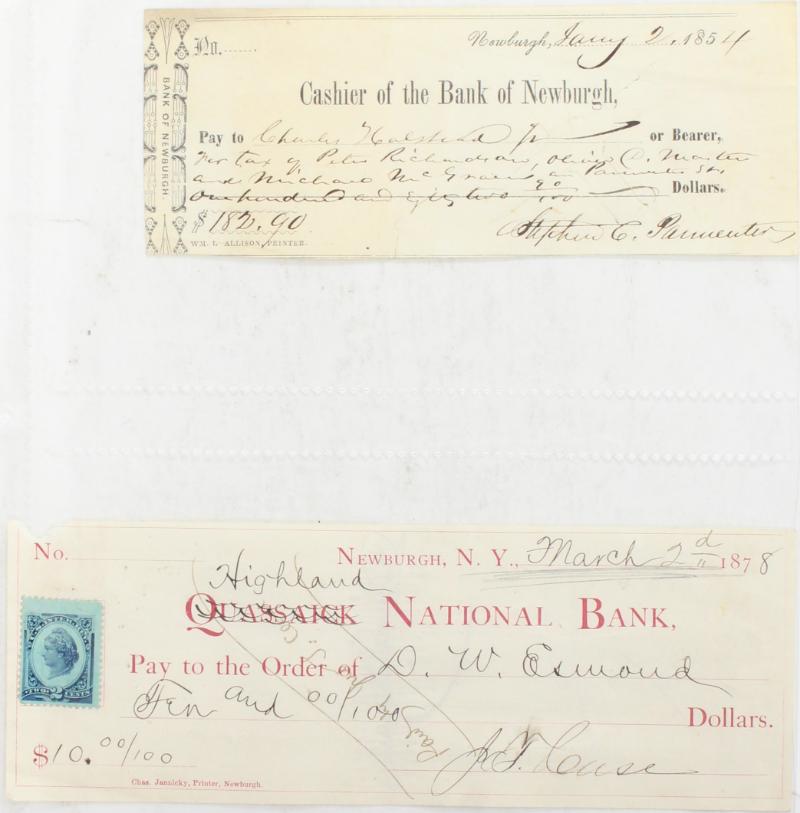 No.
Newburgh, Jany 2. 1854
BANK OF NEWBURGH.
Cashier of the Bank of Newburgh,
Pay to Charles Halstead Jr or Bearer,
For tax of Peter Richardson, C. Master
and Michael Mc on Parmenter
One hundred and Eighty two 90/100 Dollars.
$182.90
Stephen C. Parmenter
WM. L. ALLISON, PRINTER.
No.
NEWBURGH, N. Y., March 2d 1878
Highland
QUASSAICK NATIONAL BANK,
U.S. INTER. REV.
TWO 2 CENTS
Pay to the Order of D. W. Esmond
Ten and 00/100 Dollars.
Paid
$10.00/100
J. T. Case
Chas. Jannicky, Printer, Newburgh.